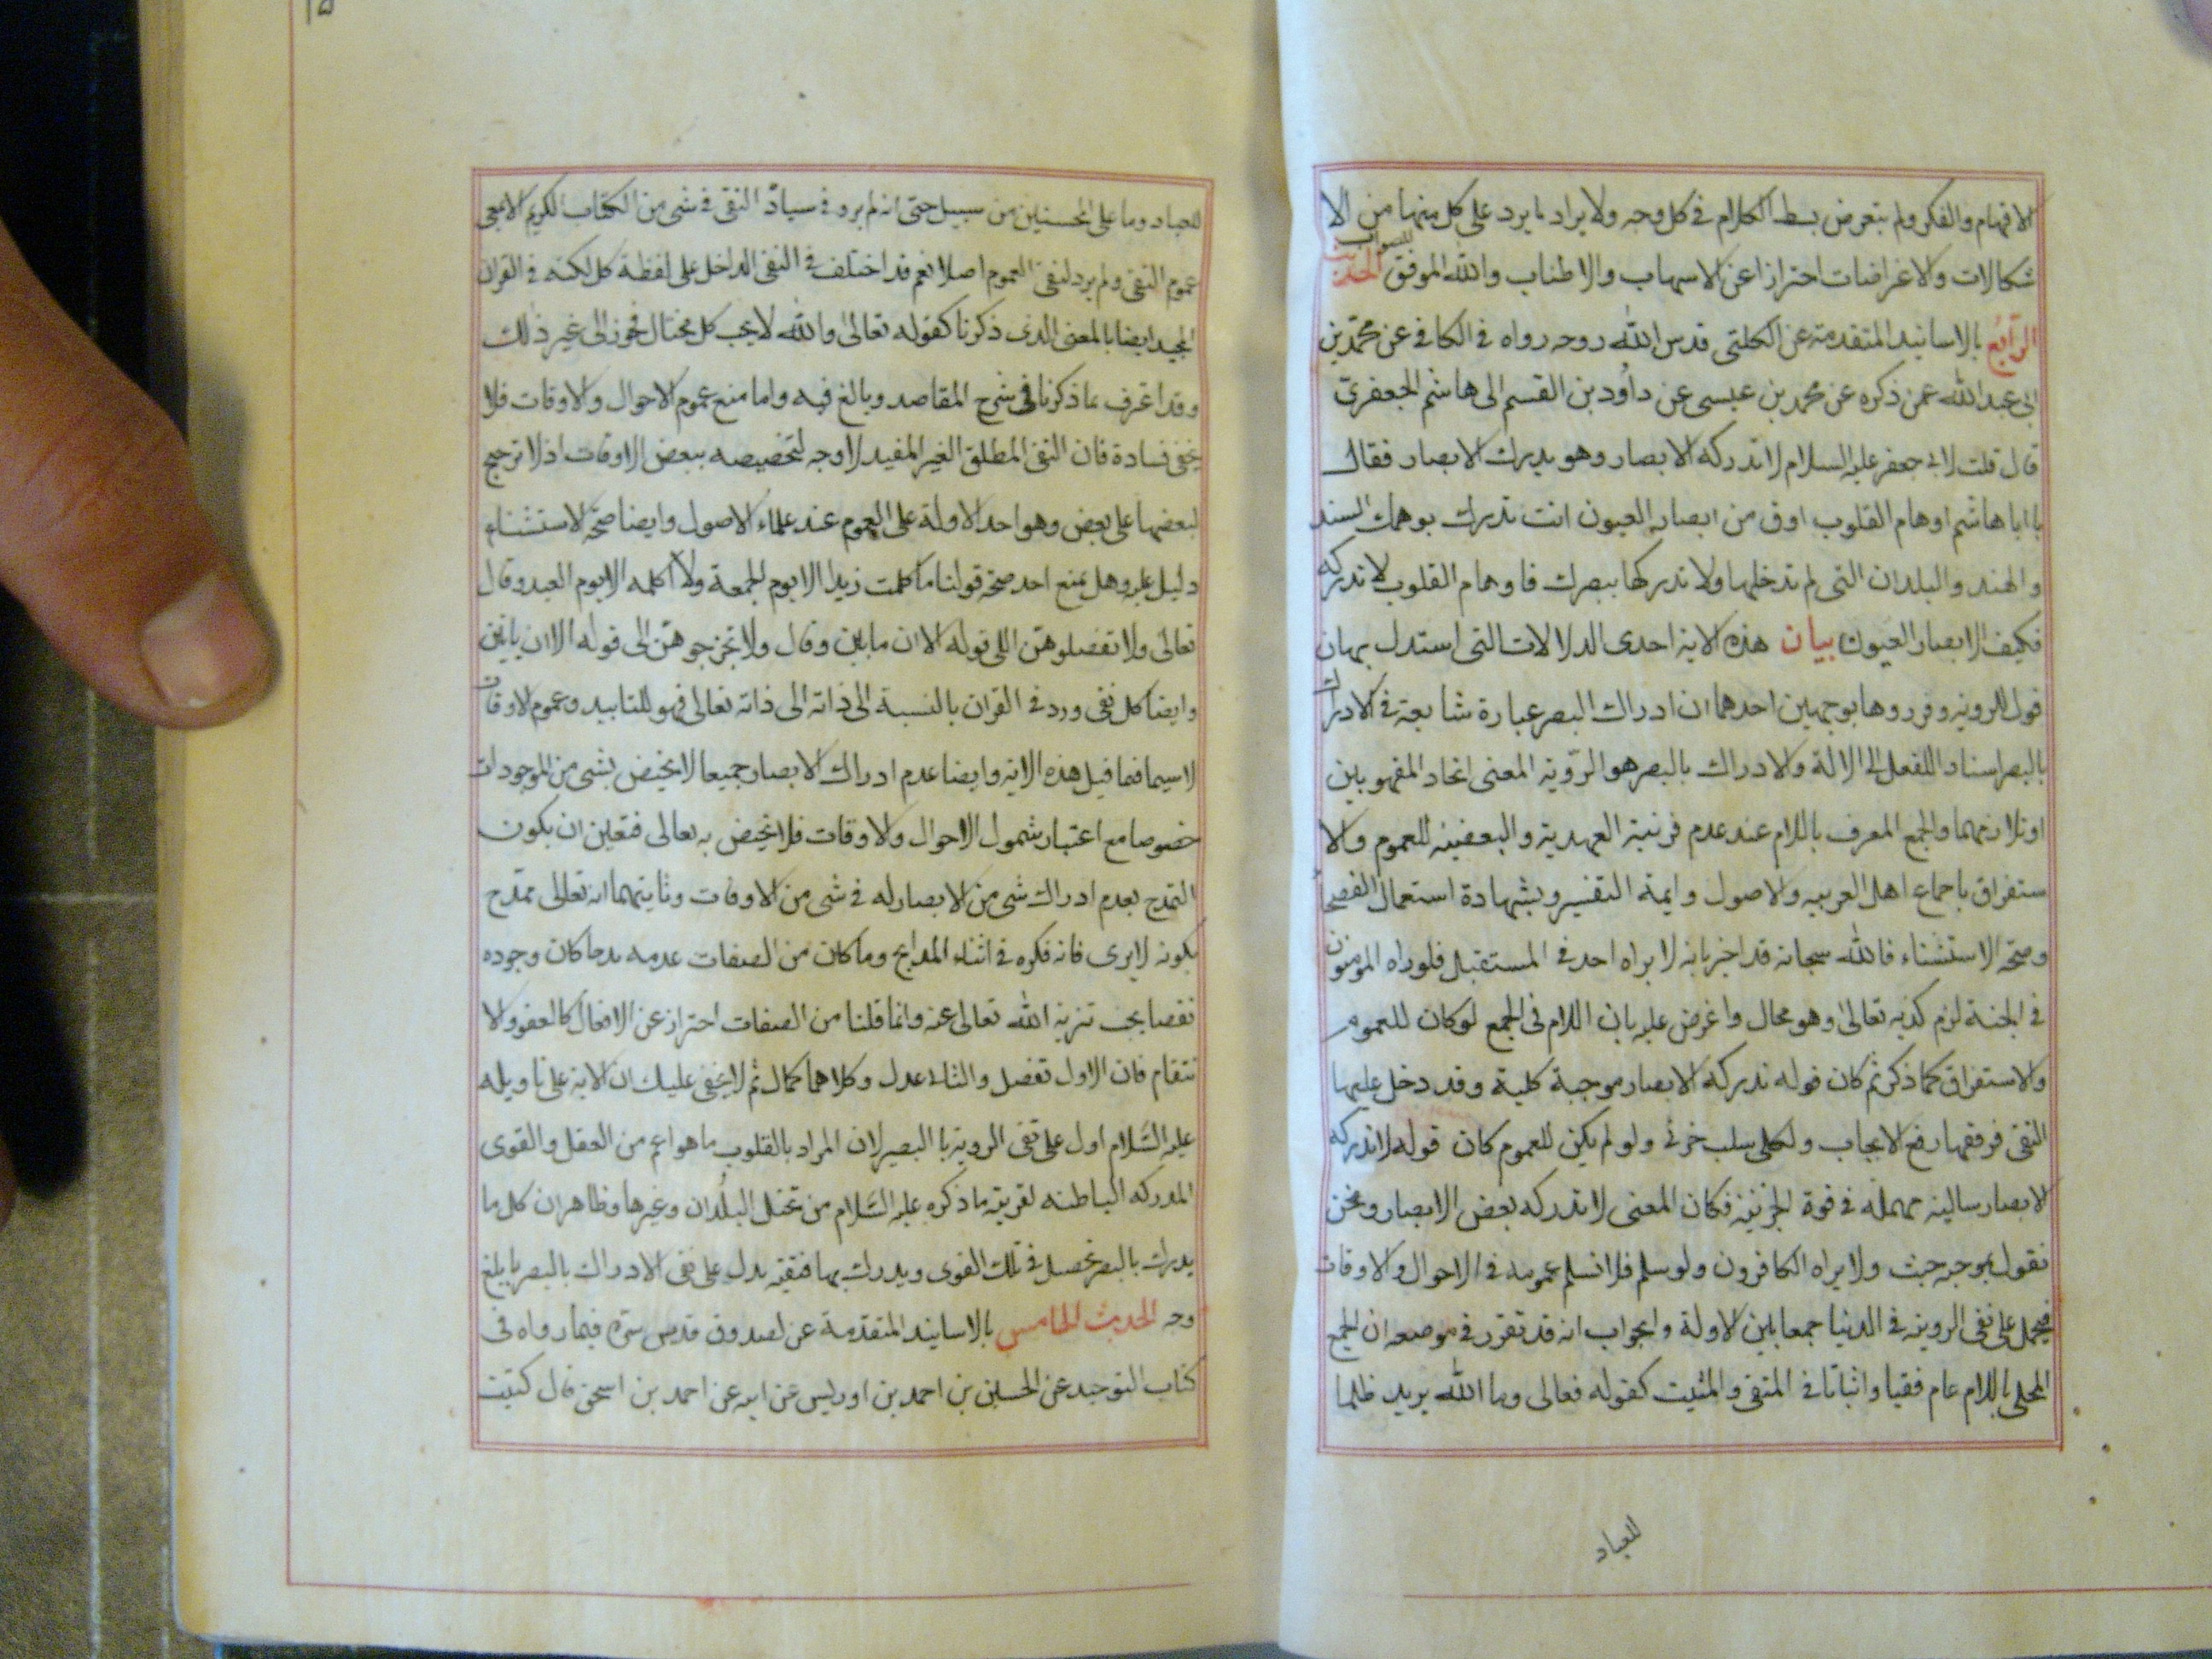 الافهام والفكر ولم يتعرض بسط الكلام في كل وجه ولا يراد ما يرد على كل منها من الا
شكالات والاغراضات احترازا عن الاسهاب والاطناب والله الموفق للصواب الحديث
الرابع بالاسانيد المتقدمة عن الكلتى قدس الله روحه رواه في الكافي عن محمد بن
ابى عبد الله عمن ذكره عن محمد بن عيسى عن داود بن القسم الى هاشم الجعفرى
قال قلت لابى جعفر عليه السلام لا تدركه الابصار وهو يدرك الابصار فقال
يا ابا هاشم اوهام القلوب اوق من ابصار العيون انت تدرك بوهمك السند
والهند والبلدان التى لم تدخلها ولا تدركها ببصرك فاوهام القلوب لا تدركه
فكيف الابصار العيون بيان هذه الاية احدى الدلالات التى استدل بها ن
قول للروية وقرروها بوجهين احدهما ان ادراك البصر عبارة شايعة في الادراك
بالبصر اسناد اللفعل الى الالة والادراك بالبصر هو الروية المعنى اتحاد المفهومين
او تلازمهما والجمع المعرف باللام عند عدم قرنية العهدية والبعضية للعموم والا
ستغراق باجماع اهل العربيه والاصول وايمة التفسير وبشهادة استعمال الفصحا
وصحة الاستشناء فالله سبحانه قد اخبر بانه لا يراه احد في المستقبل فلو راه المومنون
في الجنة لزم كذبه تعالى وهو محال واغرض عليه بان اللام في الجمع لو كان للعموم
والاستغراق كما ذكر ثم كان قوله تدركه الابصار موجبة كلية وقد دخل عليها
النفى فرفعها رفع الايجاب ولكلى سلب خرئى ولو لم يكن للعموم كان قوله لا تدركه
الابصار سالبه مهمله في قوة الجزئية فكان المعنى لا تدركه بعض الابصار ونحن
نقول بموجبه حيث ولا يراه الكافرون ولو سلم فلا نسلم عمومه في الاحوال والاوقات
فيحمل على نفى الروية في الدنيا جمعا بين الاولة والجواب انه قد تقرر في موضعه ان الجمع
المحلى باللام عام فقيا واثباتا في المتفى والمثبت كقوله فعالى وما الله يريد ظلما
للعباد
للعباد وما على المحسنين من سبيل حتى انه لم يرو في سياق النفى في شى من الكتاب الكريم الا بمعى
عموم النفى ولم يرد لنفى العموم اصلا نعم قد اختلف في النفى الداخل على لفظة كل لكنه في القران
المجيد ايضا بالمعنى الذى ذكرنا كقوله تعالى والله لا يحب كل مختال فخور الى غير ذلك
وقد اعترف بما ذكرنا في شرح المقاصد وبالغ فيه واما منع عموم الاحوال والاوقات فلا
يخفى فسادة فان النفى المطلق الغير المفيد لا وجه لتخصيصه ببعض الاوقات اذ لا ترجيح
لبعضها على بعض وهو احد الاولة على العموم عند علماء الاصول وايضا صحة الاستشناء
دليل عليه وهل يمنع احد صحة قولنا ما كلمت زيدا الا يوم الجمعة ولا اكلمه الا يوم العيد وقال
تعالى ولا تعضلوهن الى قوله الا ان ياتين وقال ولا تخرجوهن الى قوله الا ان ياتين
وايضا كل نفى ورد في القران بالنسبة الى ذاته الى ذاته تعالى فهو للتابيد وعموم لاوقات
لا سيما فيما قبل هذه الاية وايضا عدم ادراك الابصار جميعا لا يختص بشى من الموجودات
خصوصا مع اعتبار شمول الاحوال والاوقات فلا يختص به تعالى فتعين ان يكون
التمدح بعدم ادراك شى من الابصار له في شى من الاوقات وثانيتهما انه تعالى تمدح
بكونه لا يرى فانه فكره في اثناء المدايح وما كان من الصفات عدمه مدحا كان وجوده
نقصا يجب تنزيه الله تعالى عنه وانما قلنا من الصفات احتراز عن الافعال كالعفو والا
نتقام فان الاول تفضل والثانى عدل وكلاهما كمال ثم لا يخفى عليك ان الاية على تاويله
عليه السلام اول على نفى الروية با البصر لان المراد بالقلوب ما هو اعم من العقل والقوى
المدركه الباطنه لقرينة ما ذكره عليه السلام من تخيل البلدان وغيرها وظاهر ان كل ما
يدرك بالبصر تحصل في تلك القوى ويدرك بها فنفيه يدل على نفى الادراك بالبصر بابلغ
وجه الحديث الخامس بالاسانيد المتقدمة عن لصدوق قدس سره فيما رواه في
كتاب التوحيد عن الحسين بن احمد بن ادريس عن ابيه عن احمد بن اسحق قال كتبت